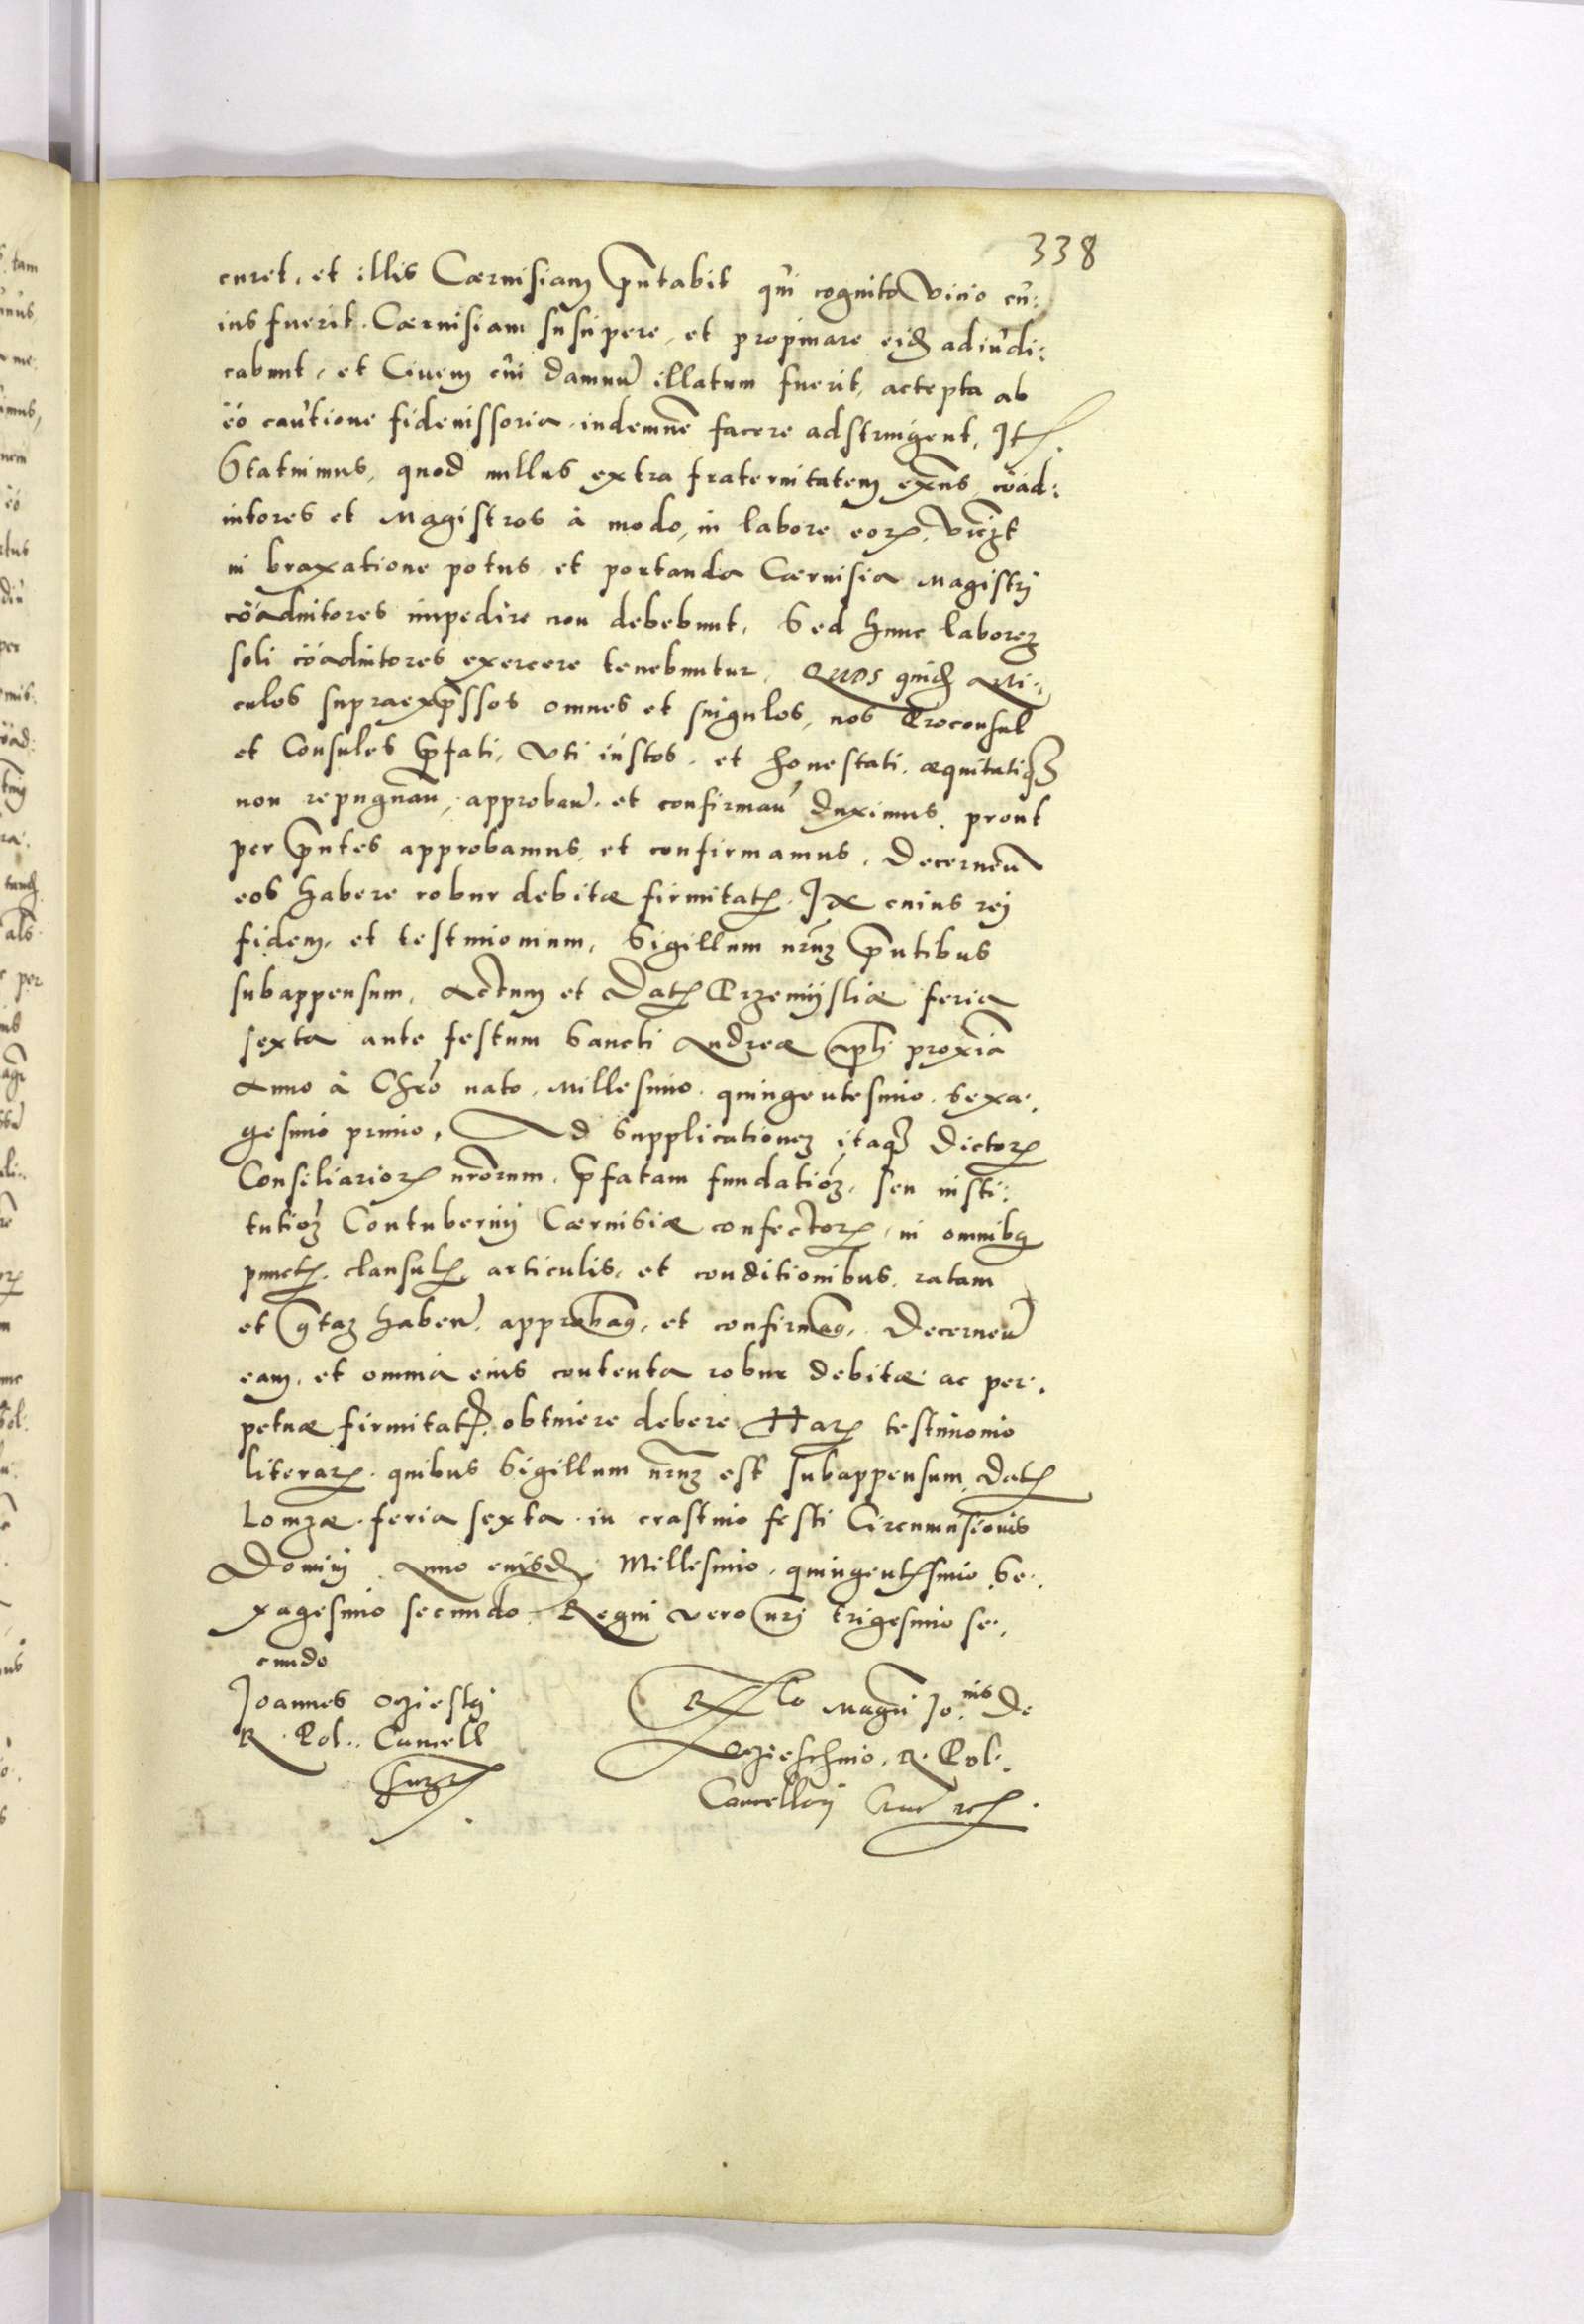 338
curet, et illis Cæruisiam pntabit qui cognito vicio cu:
ius fuerit. Cæruisiam suscipere, et propinare eid adiudi:
cabunt, et Ciuem cui damnu illatum fuerit, accepta ab
eo cautione fideiussoria indemne facere adstringent, It.
Statuimus, quod nullus extra fraternitatem exns, coad:
iutores et Magistros à modo, in labore eor, vicƺt
in braxatione potus et portanda Cæruisia Magistrj
coadiutores impedire non debebunt, Sed hunc laborem
soli coadiutores exercere tenebuntur. Quos quid arti:
culos supraexpssos omnes et singulos, nos Proconsul
et Consules pfati, vti iustos, et honestati, æquitatiq
non repugnan, approban et confirman duximus, prout
per pntes approbamus, et confirmamus. Decernen
eos habere robur debitæ firmitat. In cuius rej
fidem, et testimonium, Sigillum nrum pntibus
subappensum. Actum et Dat Przemijsliæ feria
sexta ante festum Sancti Andreæ apli proxia
Anno à Chro nato, Millesimo quingentesimo sexa.
gesimo primo. Ad Supplicationem itaq dictor
Consiliarior nrorum, pfatam fundatioem, seu insti:
tutioem Contubernij Cæruisiæ confector, in omnibq
punct, clausul, articulis, et conditionibus, ratam
et gtam haben, approbaq, et confirmaq. Decernen
eam, et omnia eius contenta robur debitæ ac per.
petuæ firmitat obtinere debere Har testimonio
literar quibus Sigillum nrum est subappensum. Dat
Lomzæ feria sexta in crastino festi Circumcisionis
Dominj Anno eiusd Millesimo quingentesimo Se.
xagesimo secundo Regni vero nrj trigesimo se.
cundo
Joannes Oczieskj R. Pol. Cancell
Rlo Magci Jo.nis De
Oczieschino, R. Pol.
Cancellarij